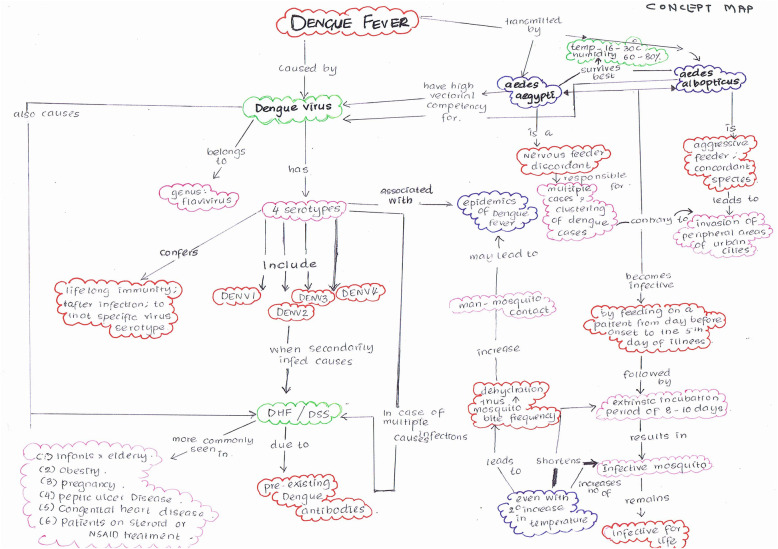 CONCEPT MAP
DENGUE FEVER
transmitted
by
temp - 16 - 30c
humidity 60 - 80%
survives
best
caused by
aedes
aegypti
aedes
albopticus
have high
vectorial
competency
for.
also causes
Dengue virus
is a
is
belongs
to
has
nervous feeder
discordant
aggressive
feeder;
concordant
species
genus:
flavivirus
associated
with
responsible
for.
multiple
cases &
clustering
of dengue
cases
leads to
4 serotypes
epidemics
of Dengue
fever
contrary to
invasion of
peripheral areas
of urban
cities
confers
Include
may lead to
becomes
infective
lifelong immunity;
after infection; to
that specific virus
serotype
DENV1
DENV2
DENV3
DENV4
man-mosquito
contact
by feeding on a
patient from day before
onset to the 5th
day of illness
when secondarily
infed causes
increase
followed
by
dehydration
thus ↑
mosquito
bite frequency
extrinsic incubation
period of 8-10 days
DHF / DSS
In case of
multiple
causes infections
more commonly
seen in
due to
results in
leads
to
shortens
Infective mosquito
increases
no of
(1) infants & elderly.
(2) obesity.
(3) pregnancy.
(4) peptic ulcer Disease.
(5) Congenital heart disease
(6) Patients on steroid or
NSAID treatment.
pre-existing
Dengue
antibodies
even with
2° increase
in
temperature
remains
infective for
life